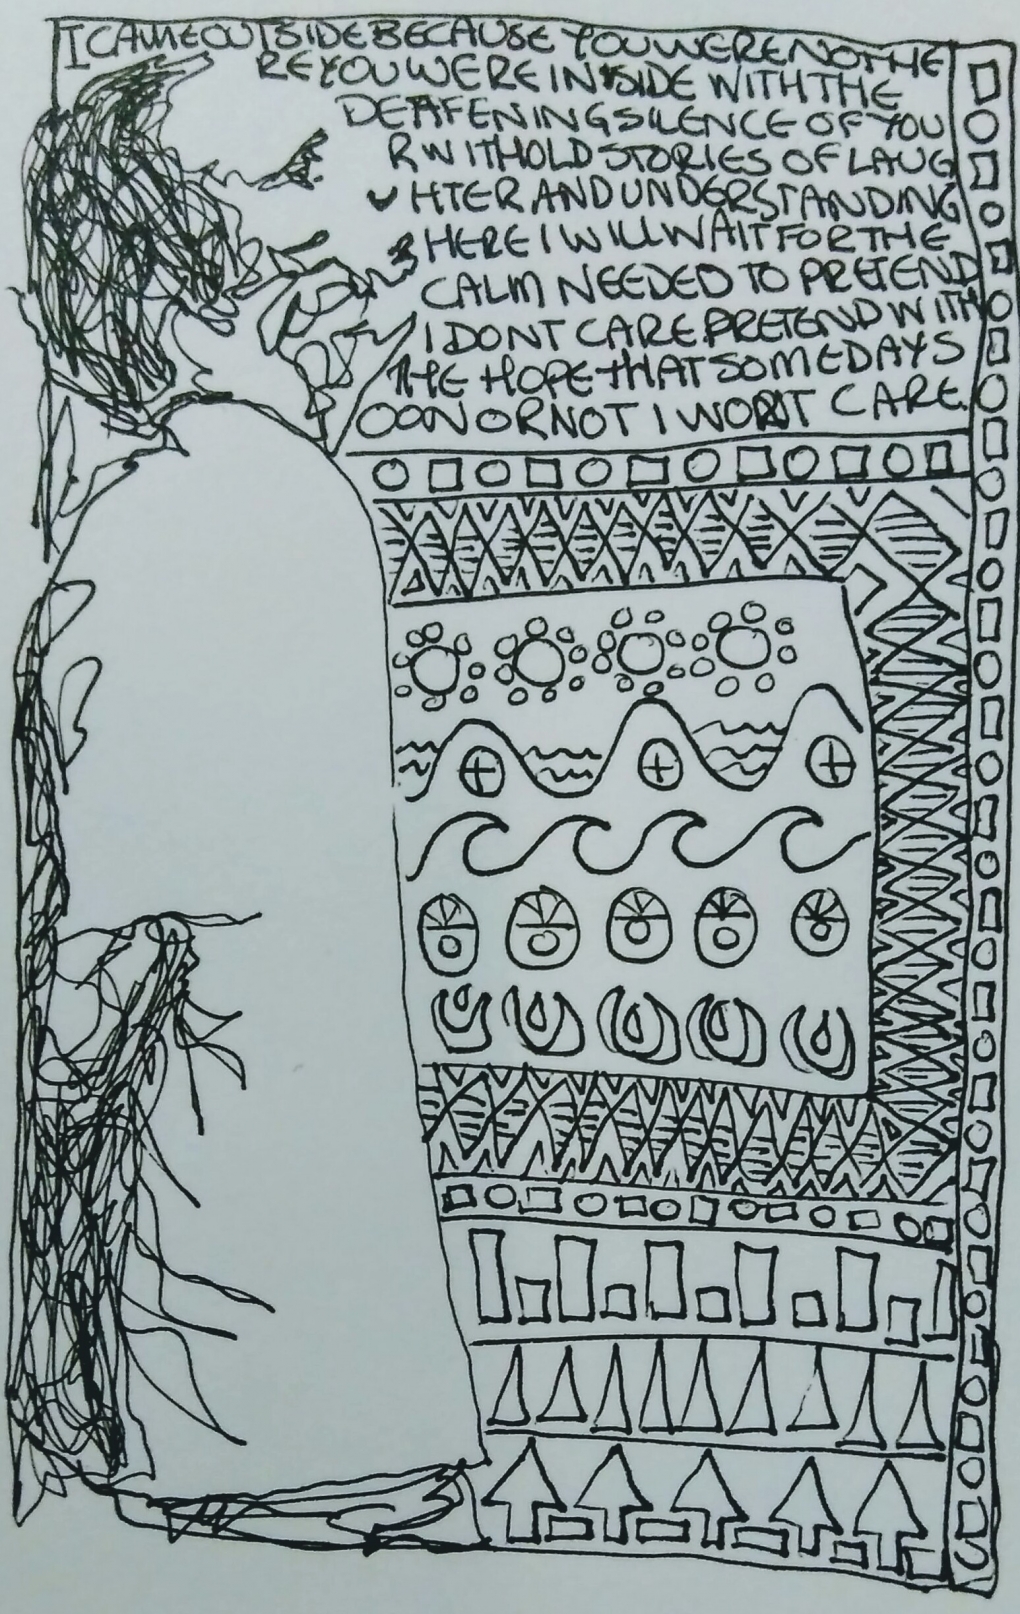 I CAME OUTSIDE BECAUSE YOU WERE NOT THE
RE YOU WERE INSIDE WITH THE
DEAFENING SILENCE OF YOU
R WITHOLD STORIES OF LAUG
HTER AND UNDERSTANDING
HERE I WILL WAIT FOR THE
CALM NEEDED TO PRETEND
I DONT CARE. PRETEND WITH
THE HOPE THAT SOMEDAY S
OON OR NOT I WONT CARE.